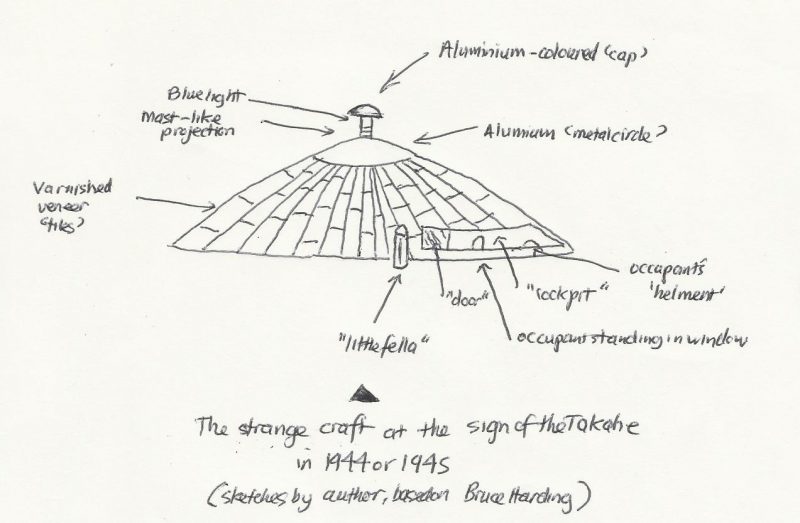 Aluminium-coloured (cap)
Bluelight
Mast-like
projection
Alumium (metalcircle)
Varnished
veneer
(tiles)
occupants'
'helment'
"door"
"cockpit"
occupant standing in window
"little fella"
The strange craft at the sign of the Takahe
in 1944 or 1945
(sketches by author, based on Bruce Harding)